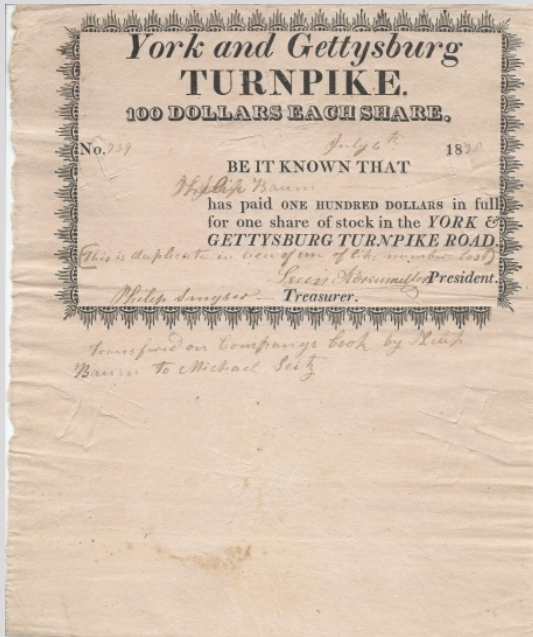 York and Gettysburg
TURNPIKE.
100 DOLLARS EACH SHARE.
No. 739 July 6th 1838
BE IT KNOWN THAT
Philip Baum
has paid ONE HUNDRED DOLLARS in full
for one share of stock in the YORK &
GETTYSBURG TURNPIKE ROAD.
(This is duplicate in lieu of one of like number lost)
President.
Philip Smyser Treasurer.
transfered on Companys book by Philip
Baum to Michael Seitz